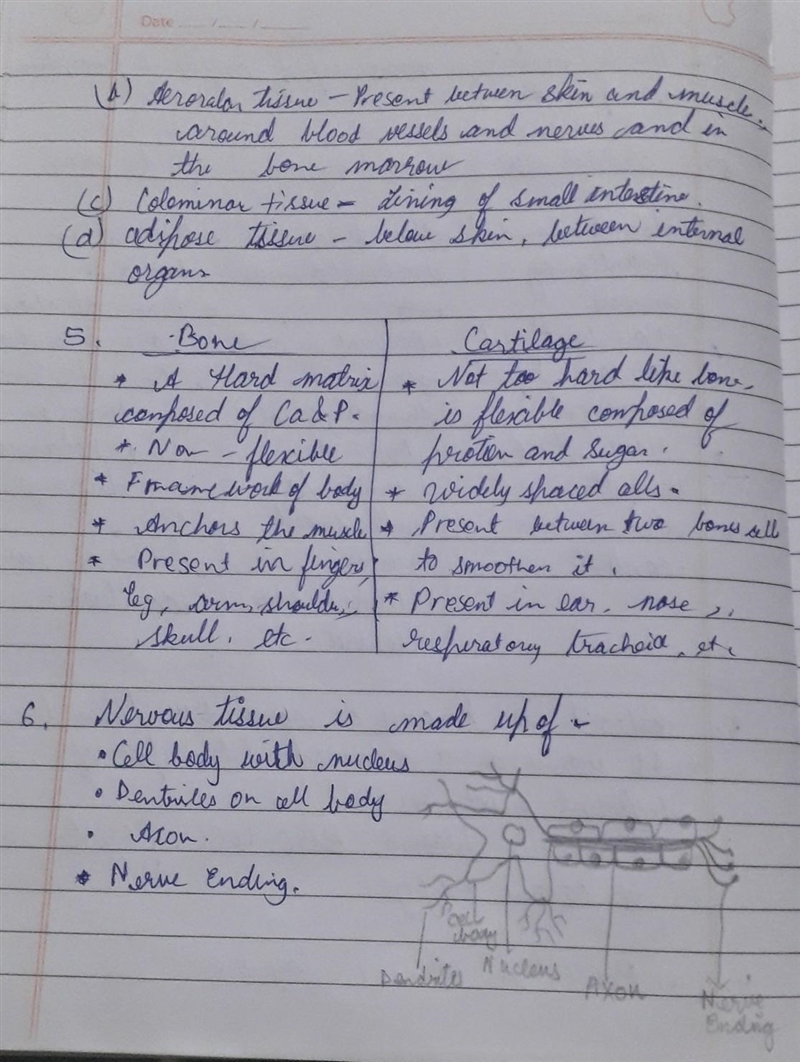 Date ___/___/___
(b) Aeroralar tissue – Present between skin and muscle,
around blood vessels and nerves and in
the bone marrow
(c) Colominar tissue – Lining of small intestine.
(d) adipose tissue – below skin, between internal
organs
5. Bone
* A Hard matrix
composed of Ca & P.
* Non – flexible
* Framework of body
* Anchors the muscle
* Present in fingers,
leg, arm, shoulder,
skull, etc.
Cartilage
* Not too hard like bone,
is flexible composed of
protion and sugar.
* Widely spaced cells.
* Present between two bones cell
to smoothen it.
* Present in ear, nose,
respiratory tracheia, etc
6. Nervous tissue is made up of -
• Cell body with nucleus
• Dentriles on cell body
• Axon.
• Nerve Ending.
Cell
body
Dendrite
Nucleus
Axon
Nerve
Ending